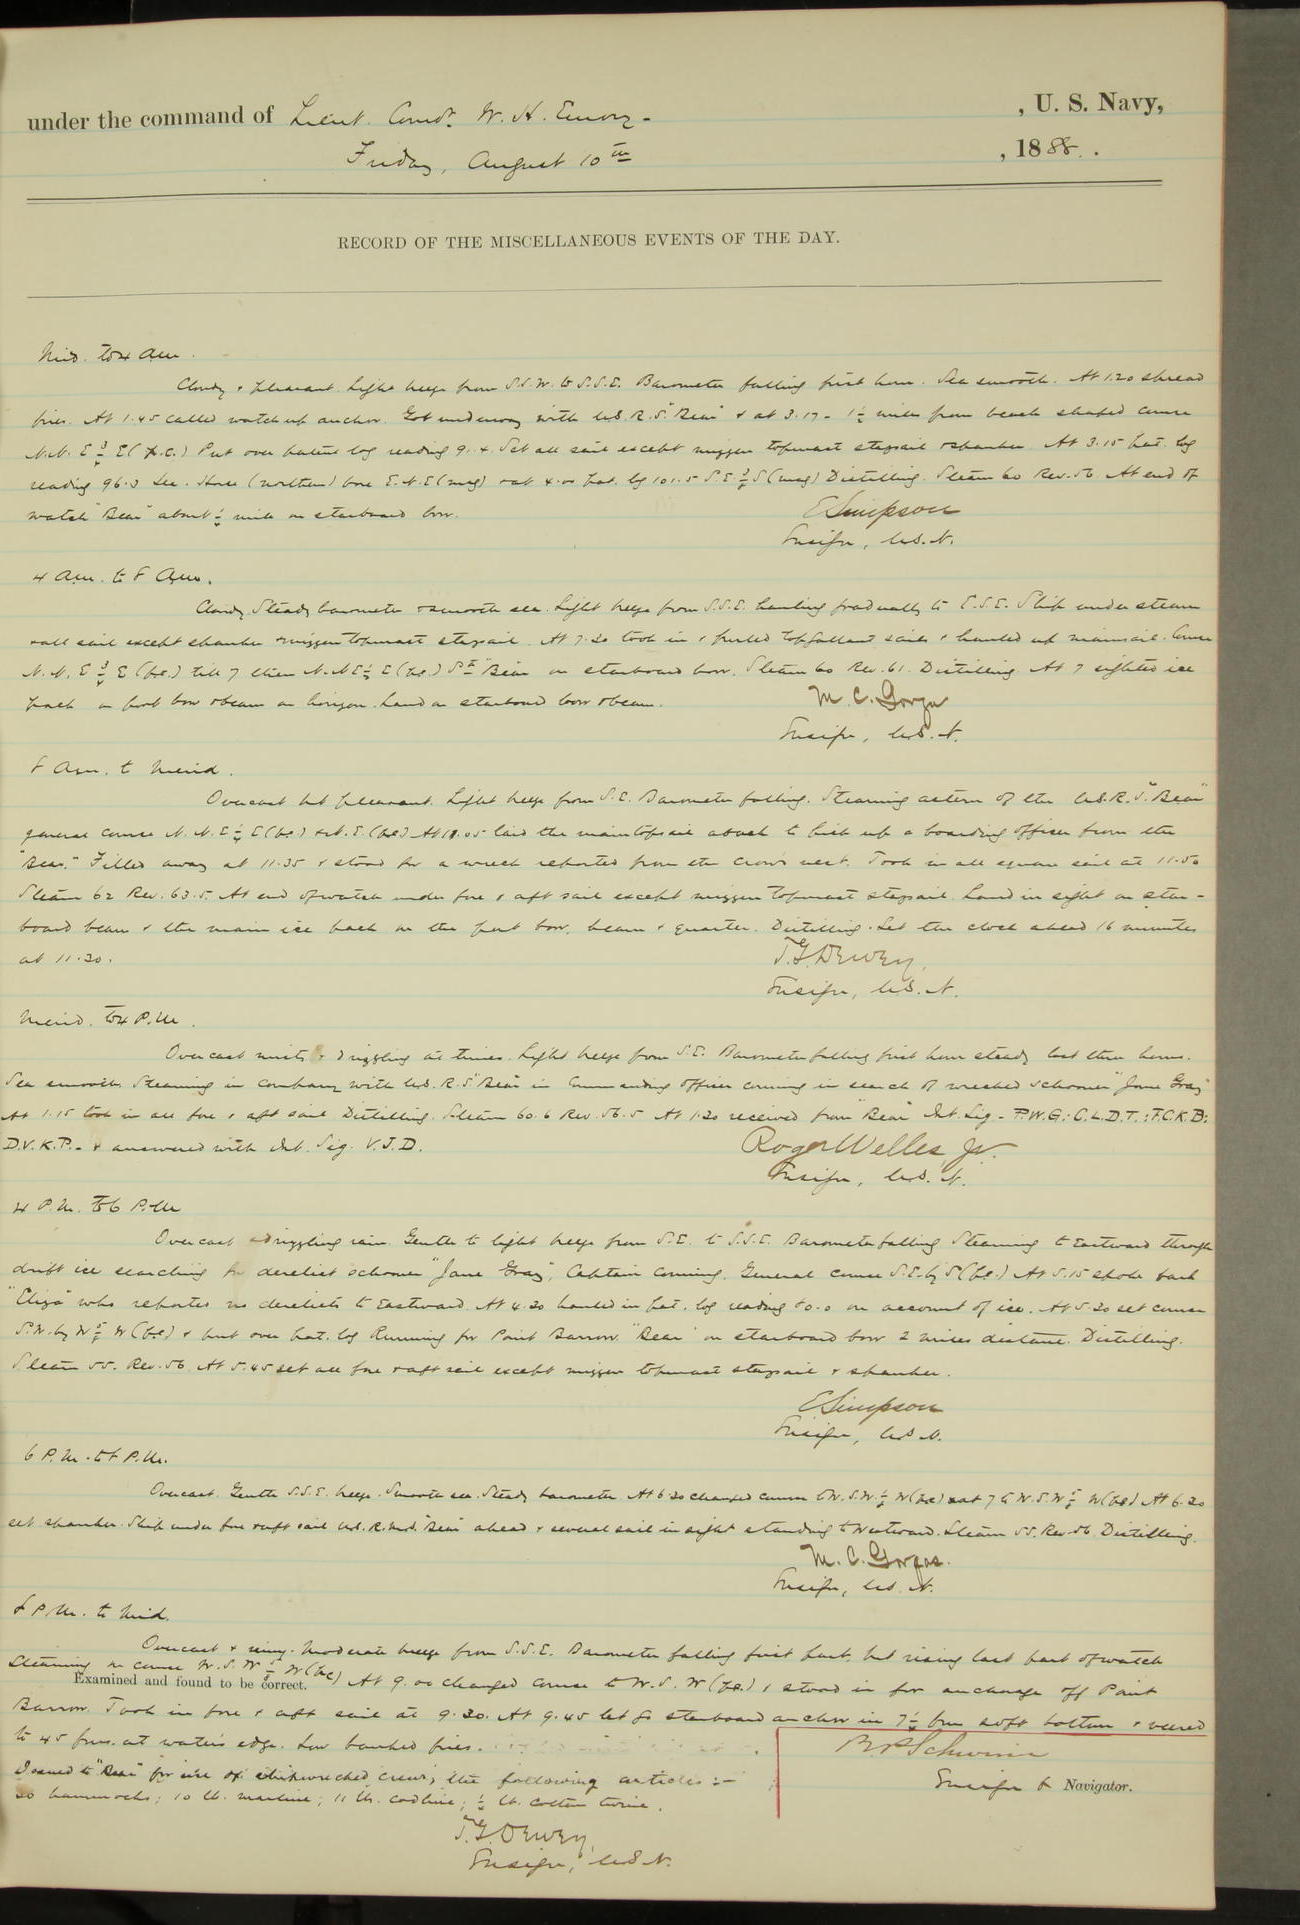 under the command of Lieut. Comdr. W. H. Emory - , U. S. Navy,
Friday, August 10th , 1888.
RECORD OF THE MISCELLANEOUS EVENTS OF THE DAY.
Mid. to 4 Am.
Cloudy & pleasant. Light breeze from S.S.W. to S.S.E. Barometer falling first hour. Sea smooth. At 1.20 spread
fires. At 1.45 called watch up anchor. Got underway with U.S.R.S. "Bear" & at 3.17 - 1½ miles from beach shaped course
N.N.E ¾ E (p.c.) Put over patent log reading 9.4. Set all sail except mizzen topmast staysail & spanker. At 3.15 pat. log
reading 96.3 Sea Horse (northern) bore E.N.E (mag) & at 4.00 pat. log 101.5 S.E ¾ S (mag) Distilling. Steam 60 Rev. 56. At end of
watch "Bear" about ½ mile on starboard bow.
E Simpson
Ensign, U.S.N.
4 Am. to 8 Am.
Cloudy. Steady barometer & smooth sea. Light breeze from S.S.E. hauling gradually to E.S.E. Ship under steam
& all sail except spanker & mizzen topmast staysail. At 7.20 took in & furled topgallant sails & hauled up mainsail. Course
N.N.E ¾ E (p.c.) till 7 then N.N.E ½ E (p.c.) Str "Bear" on starboard bow. Steam 60 Rev. 61. Distilling. At 7 sighted ice
pack on port bow & beam on horizon. Land on starboard bow & beam.
M. C. Gorgas
Ensign, U.S.N.
8 Am. to Merid.
Overcast but pleasant. Light breeze from S.E. Barometer falling. Steaming astern of the U.S.R.S. "Bear"
general course N.N.E ½ E (p.c.) & N.E. (p.c.) At 11.05 laid the maintopsail aback to pick up a boarding officer from the
"Bear." Filled away at 11.35 & stood for a wreck reported from the crow's nest. Took in all square sail at 11.50
Steam 62 Rev. 63.5. At end of watch under fore & aft sail except mizzen topmast staysail. Land in sight on star-
board beam & the main ice pack on the port bow, beam & quarter. Distilling. Set the clock ahead 16 minutes
at 11.30.
T.G. Dewey,
Ensign, U.S.N.
Merid. to 4 P.M.
Overcast misty & drizzling at times. Light breeze from S.E. Barometer falling first hour steady last three hours.
Sea smooth. Steaming in company with U.S.R.S "Bear" in Commanding officer coming in search of wrecked schooner "Jane Gray"
At 1.15 took in all fore & aft sail Distilling. Steam 60.6 Rev. 56.5 At 1.20 received from "Bear" Int. Sig - P.W.G.: C.L.D.T.: F.C.K.B:
D.V.K.P. - & answered with Int. Sig. V.J.D.
Roger Welles, Jr.
Ensign, U.S.N.
4 P.M. to 6 P.M.
Overcast & drizzling rain. Gentle to light breeze from S.E. to S.S.E. Barometer falling Steaming to Eastward through
drift ice searching for derelict schooner "Jane Gray", Captain coming. General course S.E. by S (p.c.) At 5.15 spoke bark
"Eliza" who reported no derelicts to Eastward. At 4.20 hauled in pat. log reading 40.0 on account of ice. At 5.20 set course
S.W. by W W (p.c) & put over pat. log Running for Point Barrow. "Bear" on starboard bow 2 miles distant. Distilling.
Steam 55. Rev. 56. At 5.45 set all fore & aft sail except mizzen topmast staysail & spanker.
E Simpson
Ensign, U.S.N.
6 P.M. to 8 P.M.
Overcast. Gentle S.S.E. breeze. Smooth sea. Steady barometer. At 6.20 changed course to W.S.W ½ W (p.c) & at 7 to W.S.W W (p.c) At 6.20
set spanker. Ship under fore & aft sail "Bear" ahead & several sail in sight standing to Westward. Steam 55. Rev 56 Distilling.
M. C. Gorgas.
Ensign, U.S.N.
8 P.M. to Mid.
Overcast & rainy. Moderate breeze from S.S.E. Barometer falling first part, but rising last part of watch
Steaming on course W.S.W W (p.c) At 9.00 changed course to W.S.W (p.c.) & stood in for anchorage off Point
Examined and found to be correct.
Barrow. Took in fore & aft sail at 9.30. At 9.45 let go starboard anchor in 7½ fms soft bottom & veered
to 45 fms. at water's edge. Low banked fires.
Loaned to "Bear" for use of shipwrecked crews, the following articles :-
20 hammocks; 10 lb. marline; 11 lb. codline; ½ lb. cotton twine.
T.G. Dewey,
Ensign, U.S.N.
R P Schwerin
Ensign & Navigator.